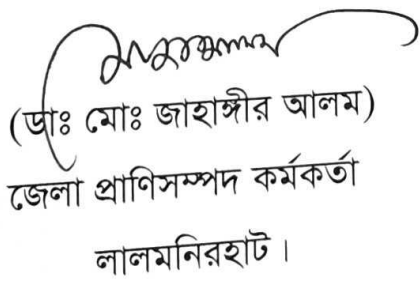 (ডাঃ মোঃ জাহাঙ্গীর আলম)
জেলা প্রাণিসম্পদ কর্মকর্তা
লালমনিরহাট।